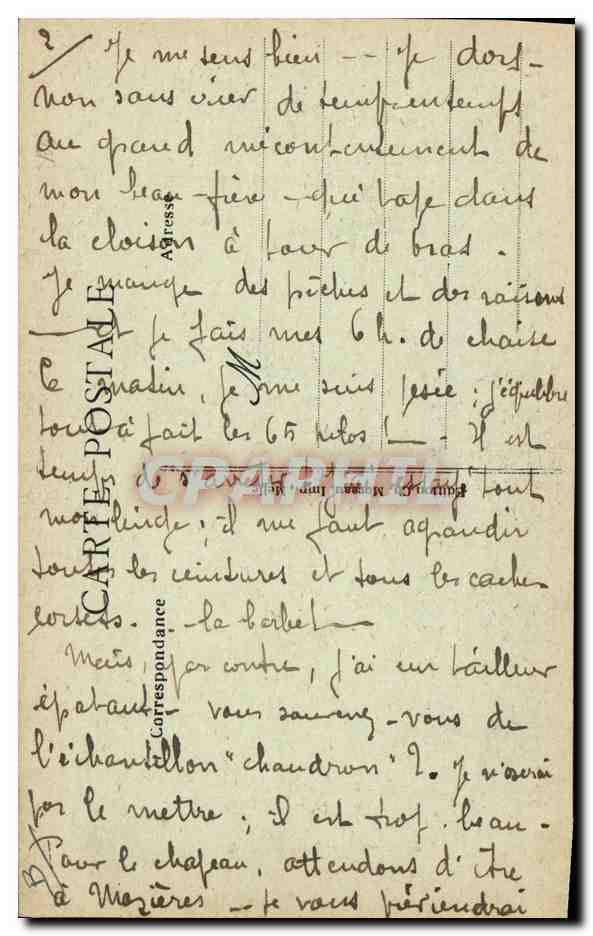 2/ Je me sens bien -- Je dors -
non sans virer de temps en temps
au grand mécontentement de
mon beau-frère - qui tape dans
la cloison à tour de bras.
Je mange des pêches et des raisins
- et je fais mes 6 h. de chaise
le matin, je me suis pesée ; j'équilibre
tout à fait les 65 kilos ! - Il est
temps de
mon linge ; il me faut agrandir
toutes les ceintures et tous les cache-
corsets. - la barbe ! -
Mais, par contre, j'ai un tailleur
épatant - vous souvenez-vous de
l'échantillon "chaudron" ?. Je n'oserai
pas le mettre ; il est trop beau -
Pour le chapeau, attendons d'être
à Mézières -- je vous préviendrai
CARTE POSTALE
Correspondance
Adresse
M
CPAPHIL